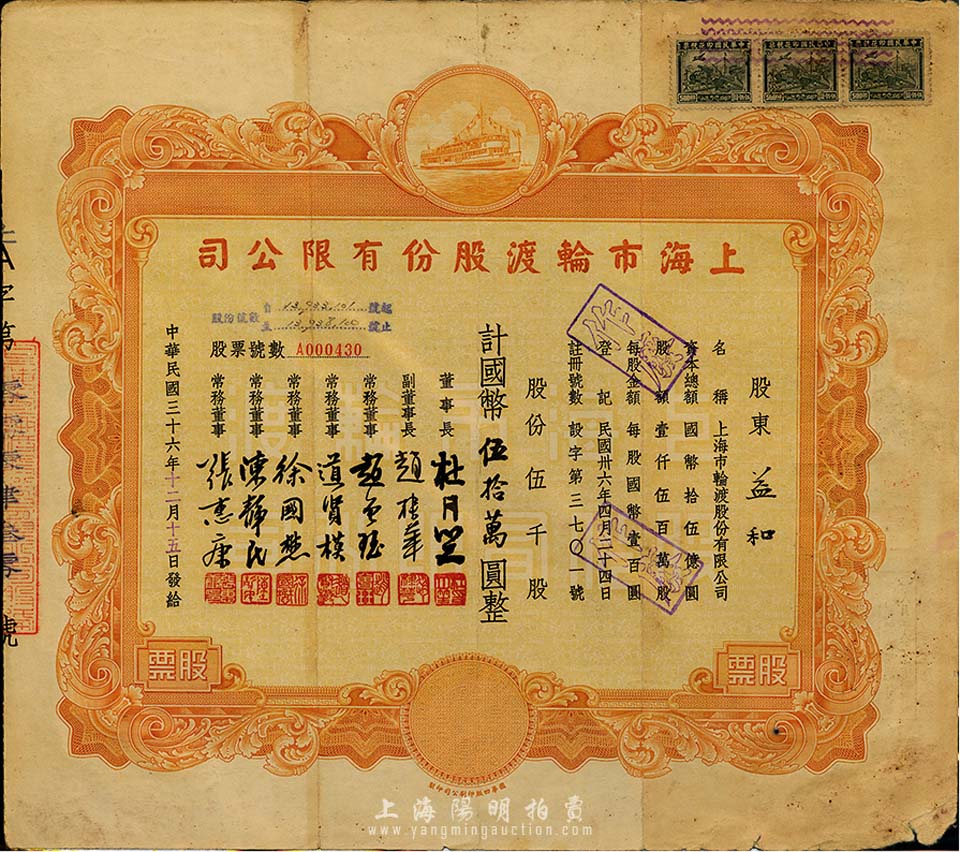 中華民國印花稅票
中華民國印花稅票
中華民國印花稅票
上海市輪渡股份有限公司
股東 益和
名稱 上海市輪渡股份有限公司
資本總額 國幣拾伍億圓
股額 壹仟伍百萬股
每股金額 每股國幣壹百圓
登記 民國卅六年四月二十四日
註冊號數 設字第三七〇一號
股份伍千股
計國幣伍拾萬圓整
董事長 杜月笙
副董事長 趙棣華
常務董事
常務董事
常務董事 徐國懋
常務董事 陳靜民
常務董事 張惠康
股份號數
自 13,933,101 號起
至 13,938,100 號止
股票號數 A000430
中華民國三十六年十二月十五日發給
股票
股票
國華凹版印刷公司印製
上海陽明拍賣
www.yangmingauction.com